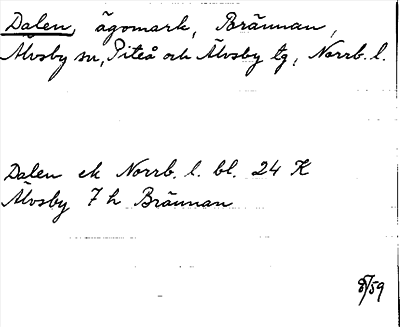 Dalen, ägomark, Brännan,
Älvsby sn, Piteå och Älvsby tg, Norrb. l.
Dalen ek Norrb. l. bl. 24 K
Älvsby 7 h Brännan